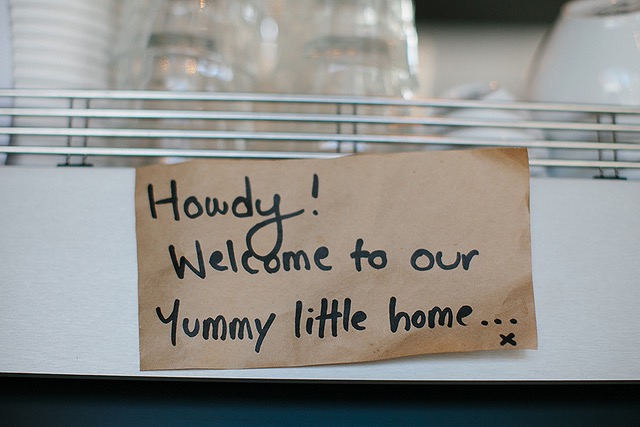 Howdy!
Welcome to our
Yummy little home...
x